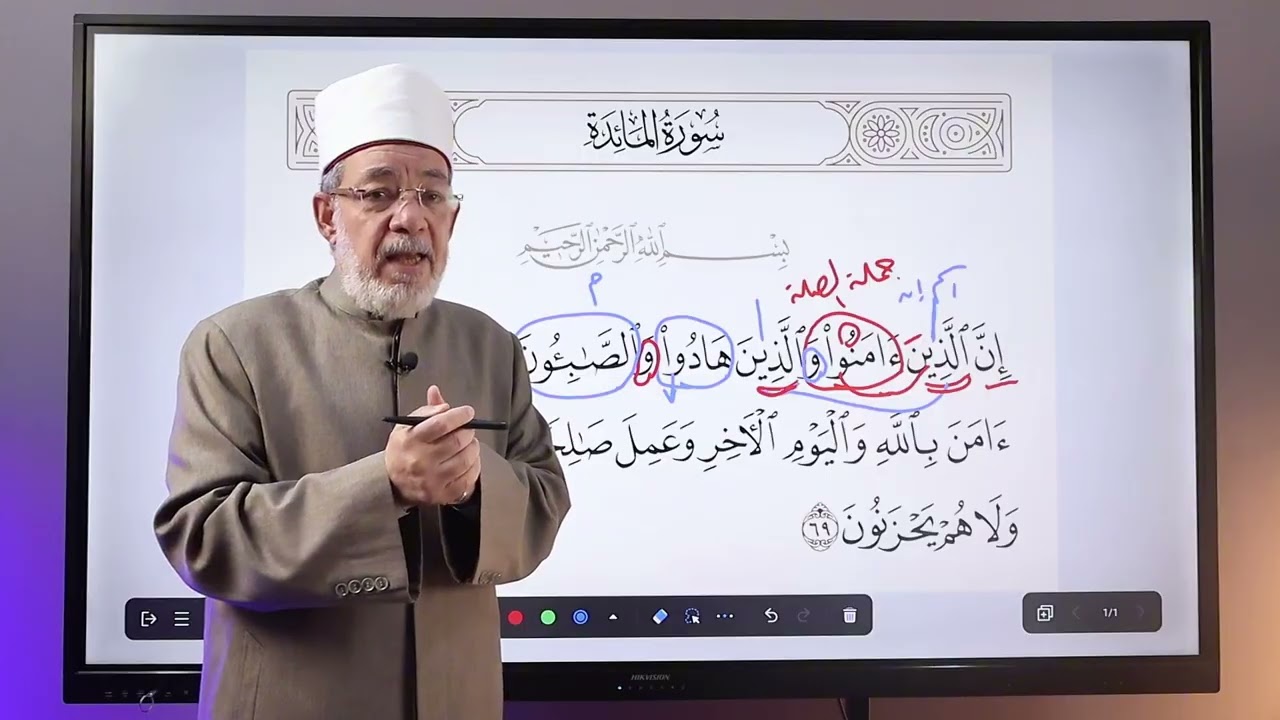 سُورَةُ المَائِدَةِ
بِسْمِ ٱللَّهِ ٱلرَّحْمَٰنِ ٱلرَّحِيمِ
جملة الصلة
اسم إن
م
إِنَّ ٱلَّذِينَ ءَامَنُوا۟ وَٱلَّذِينَ هَادُوا۟ وَٱلصَّـٰبِـُٔونَ
ءَامَنَ بِٱللَّهِ وَٱلْيَوْمِ ٱلْـَٔاخِرِ وَعَمِلَ
وَلَا هُمْ يَحْزَنُونَ ٦٩
1/1
HIKVISION